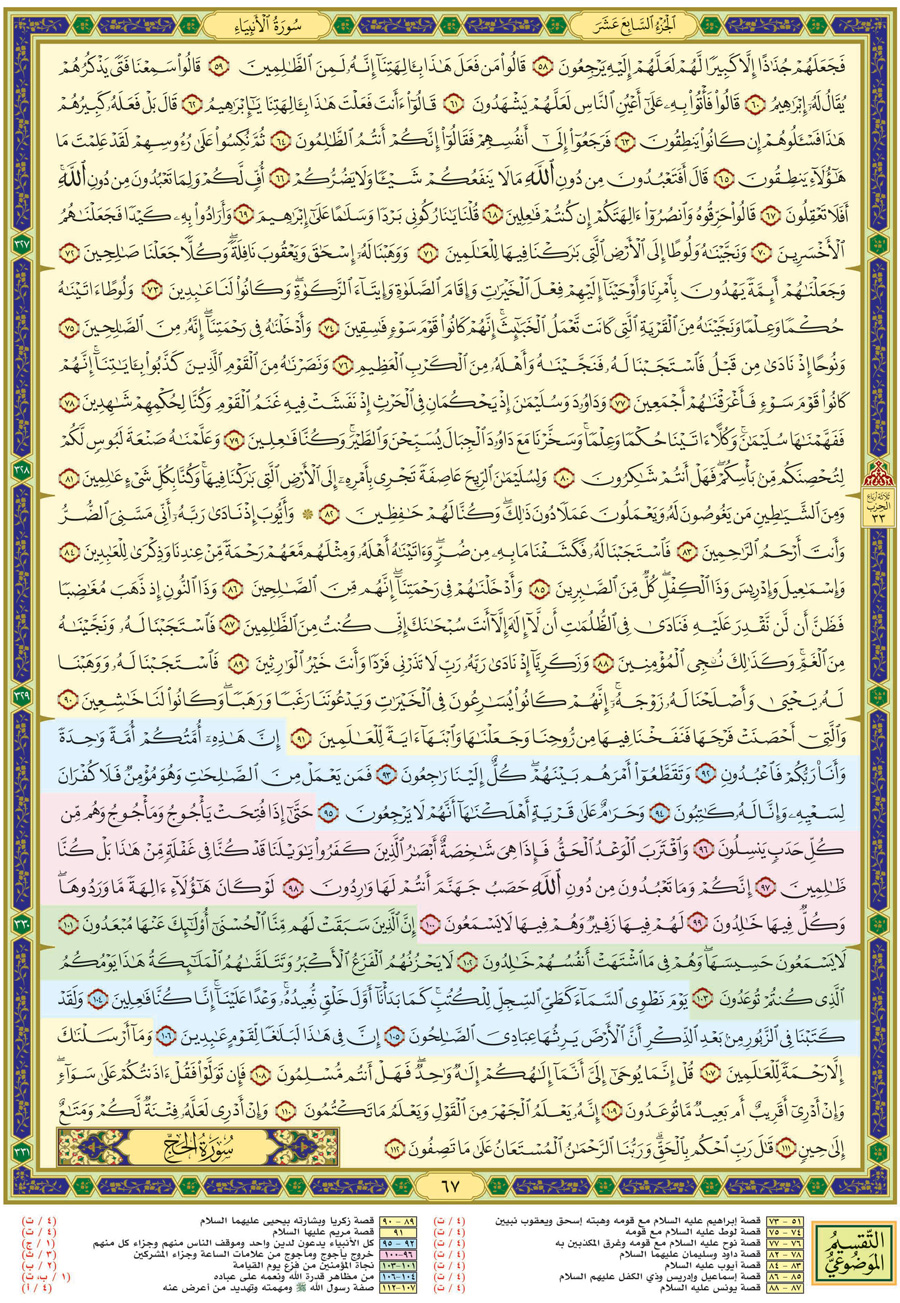 الجزء السابع عشر
سورة الأنبياء
فَجَعَلَهُمْ جُذَٰذًا إِلَّا كَبِيرًا لَّهُمْ لَعَلَّهُمْ إِلَيْهِ يَرْجِعُونَ ٥٨ قَالُوا۟ مَن فَعَلَ هَٰذَا بِـَٔالِهَتِنَآ إِنَّهُۥ لَمِنَ ٱلظَّٰلِمِينَ ٥٩ قَالُوا۟ سَمِعْنَا فَتًى يَذْكُرُهُمْ
يُقَالُ لَهُۥٓ إِبْرَٰهِيمُ ٦٠ قَالُوا۟ فَأْتُوا۟ بِهِۦ عَلَىٰٓ أَعْيُنِ ٱلنَّاسِ لَعَلَّهُمْ يَشْهَدُونَ ٦١ قَالُوٓا۟ ءَأَنتَ فَعَلْتَ هَٰذَا بِـَٔالِهَتِنَا يَٰٓإِبْرَٰهِيمُ ٦٢ قَالَ بَلْ فَعَلَهُۥ كَبِيرُهُمْ
هَٰذَا فَسْـَٔلُوهُمْ إِن كَانُوا۟ يَنطِقُونَ ٦٣ فَرَجَعُوٓا۟ إِلَىٰٓ أَنفُسِهِمْ فَقَالُوٓا۟ إِنَّكُمْ أَنتُمُ ٱلظَّٰلِمُونَ ٦٤ ثُمَّ نُكِسُوا۟ عَلَىٰ رُءُوسِهِمْ لَقَدْ عَلِمْتَ مَا
هَٰٓؤُلَآءِ يَنطِقُونَ ٦٥ قَالَ أَفَتَعْبُدُونَ مِن دُونِ ٱللَّهِ مَا لَا يَنفَعُكُمْ شَيْـًٔا وَلَا يَضُرُّكُمْ ٦٦ أُفٍّ لَّكُمْ وَلِمَا تَعْبُدُونَ مِن دُونِ ٱللَّهِ
أَفَلَا تَعْقِلُونَ ٦٧ قَالُوا۟ حَرِّقُوهُ وَٱنصُرُوٓا۟ ءَالِهَتَكُمْ إِن كُنتُمْ فَٰعِلِينَ ٦٨ قُلْنَا يَٰنَارُ كُونِى بَرْدًا وَسَلَٰمًا عَلَىٰٓ إِبْرَٰهِيمَ ٦٩ وَأَرَادُوا۟ بِهِۦ كَيْدًا فَجَعَلْنَٰهُمُ
ٱلْأَخْسَرِينَ ٧٠ وَنَجَّيْنَٰهُ وَلُوطًا إِلَى ٱلْأَرْضِ ٱلَّتِى بَٰرَكْنَا فِيهَا لِلْعَٰلَمِينَ ٧١ وَوَهَبْنَا لَهُۥٓ إِسْحَٰقَ وَيَعْقُوبَ نَافِلَةً وَكُلًّا جَعَلْنَا صَٰلِحِينَ ٧٢
٣٢٧
وَجَعَلْنَٰهُمْ أَئِمَّةً يَهْدُونَ بِأَمْرِنَا وَأَوْحَيْنَآ إِلَيْهِمْ فِعْلَ ٱلْخَيْرَٰتِ وَإِقَامَ ٱلصَّلَوٰةِ وَإِيتَآءَ ٱلزَّكَوٰةِ وَكَانُوا۟ لَنَا عَٰبِدِينَ ٧٣ وَلُوطًا ءَاتَيْنَٰهُ
حُكْمًا وَعِلْمًا وَنَجَّيْنَٰهُ مِنَ ٱلْقَرْيَةِ ٱلَّتِى كَانَت تَّعْمَلُ ٱلْخَبَٰٓئِثَ إِنَّهُمْ كَانُوا۟ قَوْمَ سَوْءٍ فَٰسِقِينَ ٧٤ وَأَدْخَلْنَٰهُ فِى رَحْمَتِنَآ إِنَّهُۥ مِنَ ٱلصَّٰلِحِينَ ٧٥
وَنُوحًا إِذْ نَادَىٰ مِن قَبْلُ فَٱسْتَجَبْنَا لَهُۥ فَنَجَّيْنَٰهُ وَأَهْلَهُۥ مِنَ ٱلْكَرْبِ ٱلْعَظِيمِ ٧٦ وَنَصَرْنَٰهُ مِنَ ٱلْقَوْمِ ٱلَّذِينَ كَذَّبُوا۟ بِـَٔايَٰتِنَآ إِنَّهُمْ
كَانُوا۟ قَوْمَ سَوْءٍ فَأَغْرَقْنَٰهُمْ أَجْمَعِينَ ٧٧ وَدَاوُۥدَ وَسُلَيْمَٰنَ إِذْ يَحْكُمَانِ فِى ٱلْحَرْثِ إِذْ نَفَشَتْ فِيهِ غَنَمُ ٱلْقَوْمِ وَكُنَّا لِحُكْمِهِمْ شَٰهِدِينَ ٧٨
فَفَهَّمْنَٰهَا سُلَيْمَٰنَ وَكُلًّا ءَاتَيْنَا حُكْمًا وَعِلْمًا وَسَخَّرْنَا مَعَ دَاوُۥدَ ٱلْجِبَالَ يُسَبِّحْنَ وَٱلطَّيْرَ وَكُنَّا فَٰعِلِينَ ٧٩ وَعَلَّمْنَٰهُ صَنْعَةَ لَبُوسٍ لَّكُمْ
لِتُحْصِنَكُم مِّنۢ بَأْسِكُمْ فَهَلْ أَنتُمْ شَٰكِرُونَ ٨٠ وَلِسُلَيْمَٰنَ ٱلرِّيحَ عَاصِفَةً تَجْرِى بِأَمْرِهِۦٓ إِلَى ٱلْأَرْضِ ٱلَّتِى بَٰرَكْنَا فِيهَا وَكُنَّا بِكُلِّ شَىْءٍ عَٰلِمِينَ ٨١
٣٢٨
ثلاثة أرباع
الحزب
٣٣
وَمِنَ ٱلشَّيَٰطِينِ مَن يَغُوصُونَ لَهُۥ وَيَعْمَلُونَ عَمَلًا دُونَ ذَٰلِكَ وَكُنَّا لَهُمْ حَٰفِظِينَ ٨٢ ۞ وَأَيُّوبَ إِذْ نَادَىٰ رَبَّهُۥٓ أَنِّى مَسَّنِىَ ٱلضُّرُّ
وَأَنتَ أَرْحَمُ ٱلرَّٰحِمِينَ ٨٣ فَٱسْتَجَبْنَا لَهُۥ فَكَشَفْنَا مَا بِهِۦ مِن ضُرٍّ وَءَاتَيْنَٰهُ أَهْلَهُۥ وَمِثْلَهُم مَّعَهُمْ رَحْمَةً مِّنْ عِندِنَا وَذِكْرَىٰ لِلْعَٰبِدِينَ ٨٤
وَإِسْمَٰعِيلَ وَإِدْرِيسَ وَذَا ٱلْكِفْلِ كُلٌّ مِّنَ ٱلصَّٰبِرِينَ ٨٥ وَأَدْخَلْنَٰهُمْ فِى رَحْمَتِنَآ إِنَّهُم مِّنَ ٱلصَّٰلِحِينَ ٨٦ وَذَا ٱلنُّونِ إِذ ذَّهَبَ مُغَٰضِبًا
فَظَنَّ أَن لَّن نَّقْدِرَ عَلَيْهِ فَنَادَىٰ فِى ٱلظُّلُمَٰتِ أَن لَّآ إِلَٰهَ إِلَّآ أَنتَ سُبْحَٰنَكَ إِنِّى كُنتُ مِنَ ٱلظَّٰلِمِينَ ٨٧ فَٱسْتَجَبْنَا لَهُۥ وَنَجَّيْنَٰهُ
مِنَ ٱلْغَمِّ وَكَذَٰلِكَ نُـۨجِى ٱلْمُؤْمِنِينَ ٨٨ وَزَكَرِيَّآ إِذْ نَادَىٰ رَبَّهُۥ رَبِّ لَا تَذَرْنِى فَرْدًا وَأَنتَ خَيْرُ ٱلْوَٰرِثِينَ ٨٩ فَٱسْتَجَبْنَا لَهُۥ وَوَهَبْنَا
لَهُۥ يَحْيَىٰ وَأَصْلَحْنَا لَهُۥ زَوْجَهُۥٓ إِنَّهُمْ كَانُوا۟ يُسَٰرِعُونَ فِى ٱلْخَيْرَٰتِ وَيَدْعُونَنَا رَغَبًا وَرَهَبًا وَكَانُوا۟ لَنَا خَٰشِعِينَ ٩٠
٣٢٩
وَٱلَّتِىٓ أَحْصَنَتْ فَرْجَهَا فَنَفَخْنَا فِيهَا مِن رُّوحِنَا وَجَعَلْنَٰهَا وَٱبْنَهَآ ءَايَةً لِّلْعَٰلَمِينَ ٩١ إِنَّ هَٰذِهِۦٓ أُمَّتُكُمْ أُمَّةً وَٰحِدَةً
وَأَنَا۠ رَبُّكُمْ فَٱعْبُدُونِ ٩٢ وَتَقَطَّعُوٓا۟ أَمْرَهُم بَيْنَهُمْ كُلٌّ إِلَيْنَا رَٰجِعُونَ ٩٣ فَمَن يَعْمَلْ مِنَ ٱلصَّٰلِحَٰتِ وَهُوَ مُؤْمِنٌ فَلَا كُفْرَانَ
لِسَعْيِهِۦ وَإِنَّا لَهُۥ كَٰتِبُونَ ٩٤ وَحَرَٰمٌ عَلَىٰ قَرْيَةٍ أَهْلَكْنَٰهَآ أَنَّهُمْ لَا يَرْجِعُونَ ٩٥ حَتَّىٰٓ إِذَا فُتِحَتْ يَأْجُوجُ وَمَأْجُوجُ وَهُم مِّن
كُلِّ حَدَبٍ يَنسِلُونَ ٩٦ وَٱقْتَرَبَ ٱلْوَعْدُ ٱلْحَقُّ فَإِذَا هِىَ شَٰخِصَةٌ أَبْصَٰرُ ٱلَّذِينَ كَفَرُوا۟ يَٰوَيْلَنَا قَدْ كُنَّا فِى غَفْلَةٍ مِّنْ هَٰذَا بَلْ كُنَّا
ظَٰلِمِينَ ٩٧ إِنَّكُمْ وَمَا تَعْبُدُونَ مِن دُونِ ٱللَّهِ حَصَبُ جَهَنَّمَ أَنتُمْ لَهَا وَٰرِدُونَ ٩٨ لَوْ كَانَ هَٰٓؤُلَآءِ ءَالِهَةً مَّا وَرَدُوهَا
وَكُلٌّ فِيهَا خَٰلِدُونَ ٩٩ لَهُمْ فِيهَا زَفِيرٌ وَهُمْ فِيهَا لَا يَسْمَعُونَ ١٠٠ إِنَّ ٱلَّذِينَ سَبَقَتْ لَهُم مِّنَّا ٱلْحُسْنَىٰٓ أُو۟لَٰٓئِكَ عَنْهَا مُبْعَدُونَ ١٠١
٣٣٠
لَا يَسْمَعُونَ حَسِيسَهَا وَهُمْ فِى مَا ٱشْتَهَتْ أَنفُسُهُمْ خَٰلِدُونَ ١٠٢ لَا يَحْزُنُهُمُ ٱلْفَزَعُ ٱلْأَكْبَرُ وَتَتَلَقَّىٰهُمُ ٱلْمَلَٰٓئِكَةُ هَٰذَا يَوْمُكُمُ
ٱلَّذِى كُنتُمْ تُوعَدُونَ ١٠٣ يَوْمَ نَطْوِى ٱلسَّمَآءَ كَطَىِّ ٱلسِّجِلِّ لِلْكُتُبِ كَمَا بَدَأْنَآ أَوَّلَ خَلْقٍ نُّعِيدُهُۥ وَعْدًا عَلَيْنَآ إِنَّا كُنَّا فَٰعِلِينَ ١٠٤ وَلَقَدْ
كَتَبْنَا فِى ٱلزَّبُورِ مِنۢ بَعْدِ ٱلذِّكْرِ أَنَّ ٱلْأَرْضَ يَرِثُهَا عِبَادِىَ ٱلصَّٰلِحُونَ ١٠٥ إِنَّ فِى هَٰذَا لَبَلَٰغًا لِّقَوْمٍ عَٰبِدِينَ ١٠٦ وَمَآ أَرْسَلْنَٰكَ
إِلَّا رَحْمَةً لِّلْعَٰلَمِينَ ١٠٧ قُلْ إِنَّمَا يُوحَىٰٓ إِلَىَّ أَنَّمَآ إِلَٰهُكُمْ إِلَٰهٌ وَٰحِدٌ فَهَلْ أَنتُم مُّسْلِمُونَ ١٠٨ فَإِن تَوَلَّوْا۟ فَقُلْ ءَاذَنتُكُمْ عَلَىٰ سَوَآءٍ
وَإِنْ أَدْرِىٓ أَقَرِيبٌ أَم بَعِيدٌ مَّا تُوعَدُونَ ١٠٩ إِنَّهُۥ يَعْلَمُ ٱلْجَهْرَ مِنَ ٱلْقَوْلِ وَيَعْلَمُ مَا تَكْتُمُونَ ١١٠ وَإِنْ أَدْرِى لَعَلَّهُۥ فِتْنَةٌ لَّكُمْ وَمَتَٰعٌ
إِلَىٰ حِينٍ ١١١ قَٰلَ رَبِّ ٱحْكُم بِٱلْحَقِّ وَرَبُّنَا ٱلرَّحْمَٰنُ ٱلْمُسْتَعَانُ عَلَىٰ مَا تَصِفُونَ ١١٢ سورة الحج
٣٣١
٦٧
التقسيم
الموضوعي
٥١ - ٧٣ قصة إبراهيم عليه السلام مع قومه وهبته إسحق ويعقوب نبيين (٤ / ت)
٧٤ - ٧٥ قصة لوط عليه السلام مع قومه (٤ / ت)
٧٦ - ٧٧ قصة نوح عليه السلام مع قومه وغرق المكذبين به (٤ / ت)
٧٨ - ٨٢ قصة داود وسليمان عليهما السلام (٤ / ت)
٨٣ - ٨٤ قصة أيوب عليه السلام (٤ / ت)
٨٥ - ٨٦ قصة إسماعيل وإدريس وذي الكفل عليهم السلام (٤ / ت)
٨٧ - ٨٨ قصة يونس عليه السلام (٤ / ت)
٨٩ - ٩٠ قصة زكريا وبشارته بيحيى عليهما السلام (٤ / ت)
٩١ قصة مريم عليها السلام (٤ / ت)
٩٢ - ٩٥ كل الأنبياء يدعون لدين واحد وموقف الناس منهم وجزاء كل منهم (١ / ج)
٩٦-١٠٠ خروج يأجوج ومأجوج من علامات الساعة وجزاء المشركين (٣ / ت)
١٠١-١٠٣ نجاة المؤمنين من فزع يوم القيامة (٢ / ب)
١٠٤-١٠٦ من مظاهر قدرة الله ونعمه على عباده (١ / ب، ت)
١٠٧-١١٢ صفة رسول الله ﷺ ومهمته وتهديد من أعرض عنه (٤ / أ)